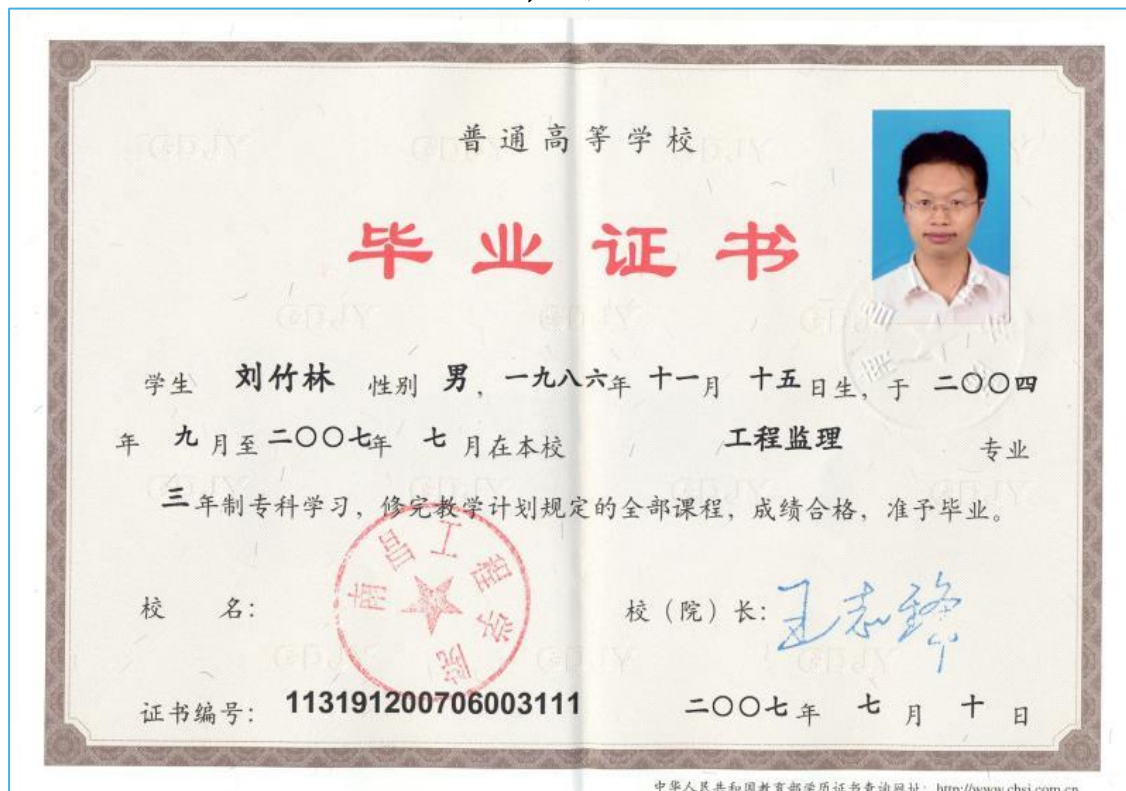 普通高等学校
毕业证书
学生 刘竹林 性别 男，一九八六年 十一月 十五日生，于 二〇〇四
年 九月至二〇〇七年 七月在本校 工程监理 专业
三年制专科学习，修完教学计划规定的全部课程，成绩合格，准予毕业。
南昌工程学院
校 名： 校（院）长：王志锋
证书编号： 113191200706003111 二〇〇七年 七月 十日
中华人民共和国教育部学历证书查询网址：http://www.chsi.com.cn